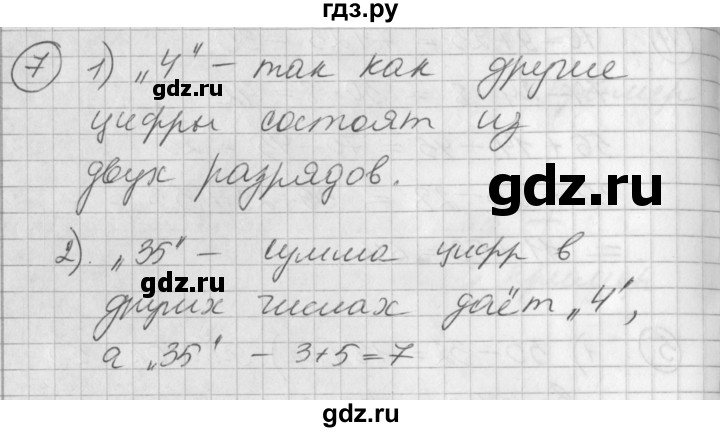 гдз.ру
7 1) „4" – так как другие
gdz.ru
цифры состоят из
двух разрядов.
gdz.ru
2). „35" – сумма цифр в
gdz.ru
других числах даёт „4",
а „35" – 3+5=7
gdz.ru